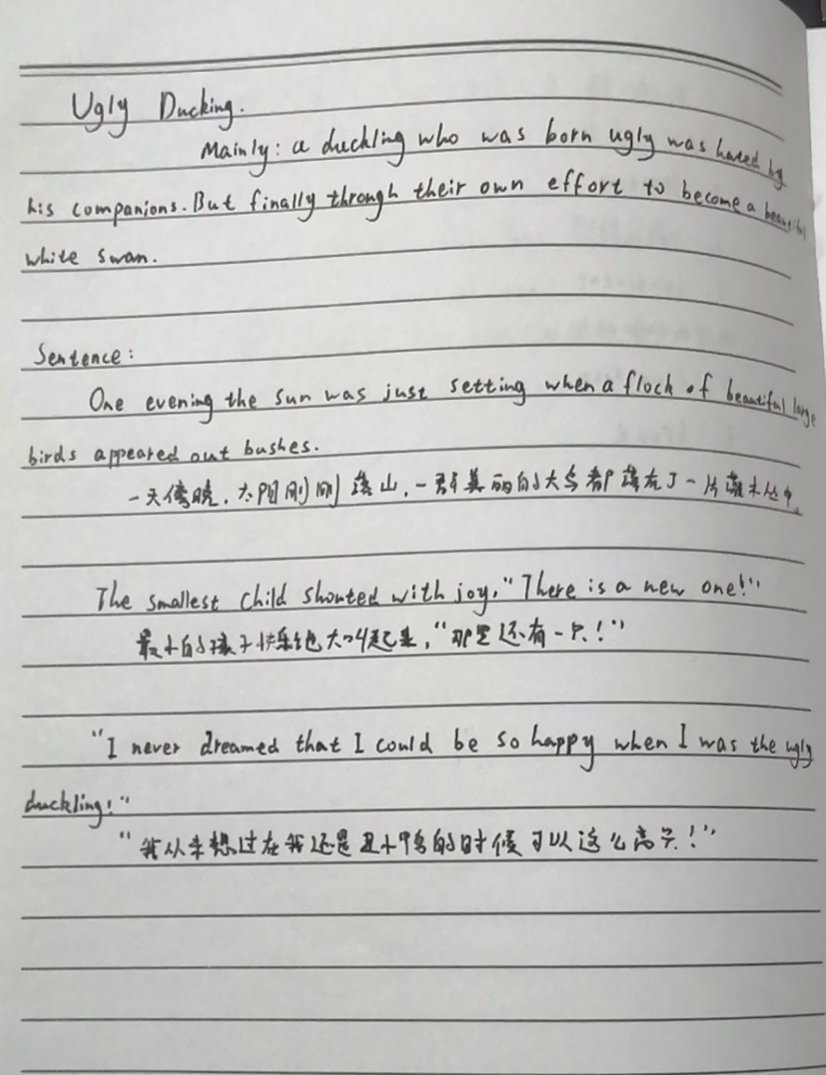 Ugly Ducking.
Mainly: a duckling who was born ugly was hated by
his companions. But finally through their own effort to become a beautiful
white swan.
Sentence:
One evening the sun was just setting when a flock of beautiful large
birds appeared out bushes.
一天傍晚，太阳刚刚落山，一群美丽的大鸟都落在了一片灌木丛中。
The smallest child shouted with joy, "There is a new one!"
最小的孩子快乐地大叫起来，"那里还有一只！"
"I never dreamed that I could be so happy when I was the ugly
duckling!"
"我从来想过在我还是丑小鸭的时候可以这么高兴！"